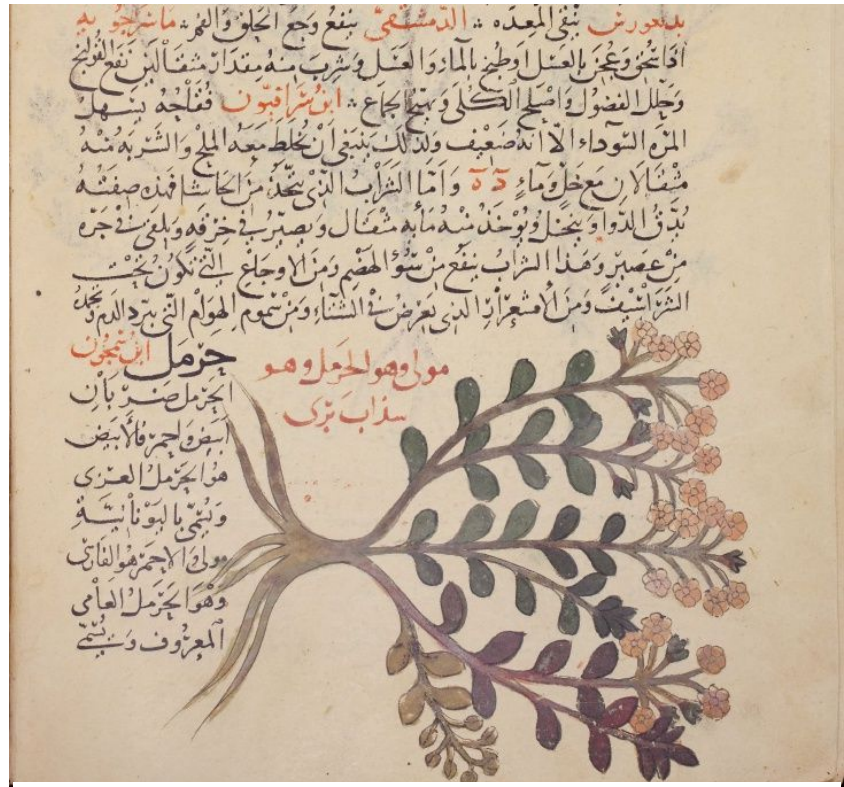 بديغورش ينقى المعده ؞ الدمشقى ينفع وجع الحلق والفم ؞ ماسرجويه
اذا سحق وعجن بالعسل اوطبخ بالماء والعسل وشرب منه مقدار مثقالين نفع القولنج
وحلل الفضول واصلح الكلى وهيج الجماع ؞ ابن سرافيون فقاحه يسهل
المرة السوداء الا انه ضعيف ولذلك ينبغى ان يخلط معه الملح والشربه منه
مثقالان مع خل وماء دَ دَ واما الشراب الذى يتخذ من الحاشا فهذه صفته
يدق الدواء وينخل ويوخذ منه مايه مثقال ويصير فى خرقه ويلقى فى جره
من عصير وهذا الشراب ينفع من سؤ الهضم ومن الاوجاع التى تكون تحت
الشراسيف ومن الاقشعرار الذى يعرض فى الشتاء ومن سموم الهوام التى يبرد الدم ويجمد
حرمل ابن سمجون
مولى وهو الحرمل وهو
سذاب برى
الحرمل ضربان
ابيض واحمر فالابيض
هو الحرمل العربى
ويسمى باليونانية
مولى والاحمر هو الفارسى
وهو الحرمل العامى
المعروف ويسمى